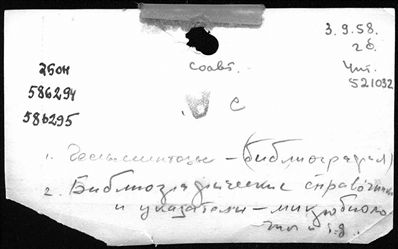 3.9.58.
2б.
соавт.
Чит.
521032
26он
586294
586295
с
1. – (библиография)
2. Библиографические справочники
и указатели – микробиоло
гии и т.д.